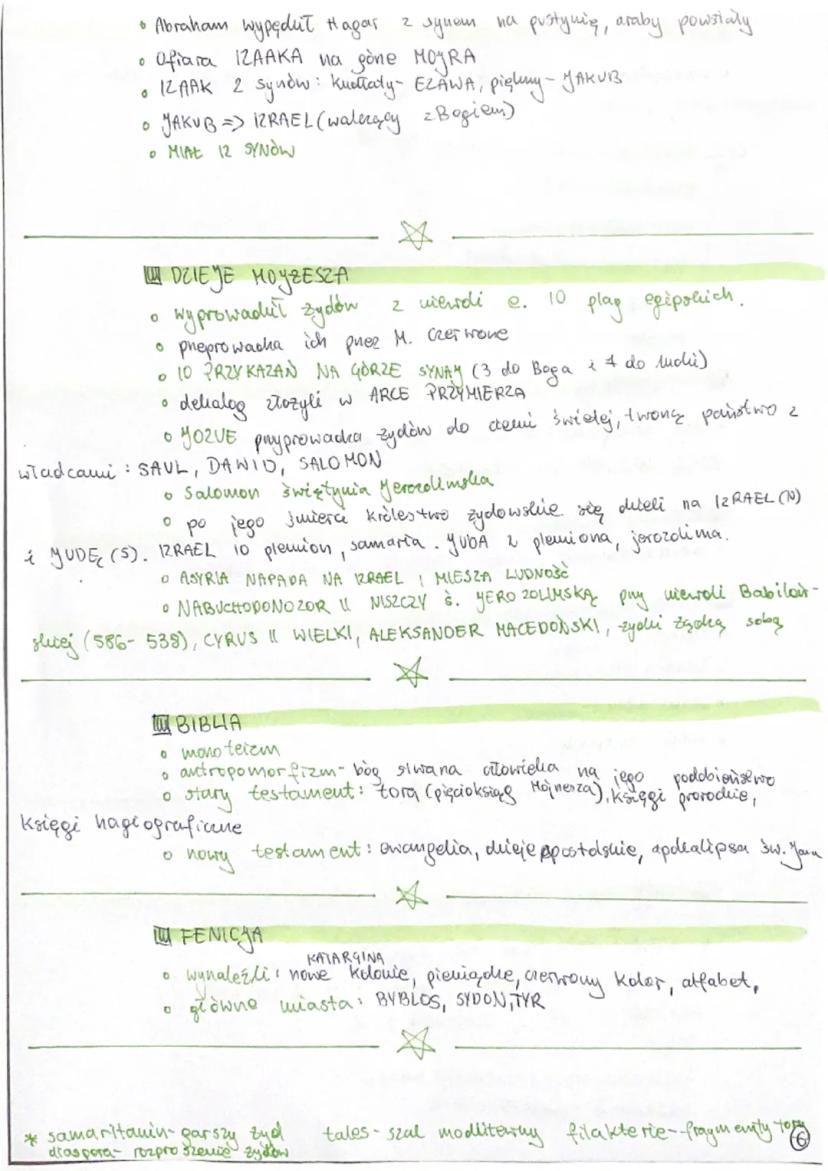 • Abraham wypędził Hagar z synem na pustynię, araby powstały
• Ofiara IZAAKA na górze MOYRA
• IZAAK 2 synów: kudłaty- EZAWA, piękny- JAKUB
• JAKUB => IZRAEL (walczący z Bogiem)
• MIAŁ 12 SYNÓW
DZIEJE MOJŻESZA
• wyprowadził żydów z niewoli e. 10 plag egipskich.
• przeprowadza ich przez M. Czerwone
• 10 PRZYKAZAŃ NA GÓRZE SYNAJ (3 do Boga i 7 do ludzi)
• dekalog złożyli w ARCE PRZYMIERZA
• JOZUE przyprowadza żydów do ziemi świętej, tworzą państwo z
władcami: SAUL, DAWID, SALOMON
• Salomon świętynia Jerozolimska
• po jego śmierci królestwo żydowskie się dzieli na IZRAEL (N)
i JUDĘ (S). IZRAEL 10 plemion, samaria. JUDA 2 plemiona, jerozolima.
• ASYRIA NAPADA NA IZRAEL i MIESZA LUDNOŚĆ
• NABUCHODONOZOR II NISZCZY Ś. JEROZOLIMSKĄ przy niewoli Babiloń-
skiej (586-538), CYRUS II WIELKI, ALEKSANDER MACEDOŃSKI, żydzi żądzą sobą
BIBLIA
• monoteizm
• antropomorfizm- bóg stwarza człowieka na jego podobieństwo
• stary testament: tora (pięcioksiąg Mojżesza), księgi prorockie,
księgi hagiograficzne
• nowy testament: ewangelia, dzieje apostolskie, apokalipsa św. Jana
FENICJA
KATARGINA
• wynaleźli: nowe kolonie, pieniądze, czerwony kolor, alfabet,
• główne miasta: BYBLOS, SYDON, TYR
* samaritanin- garszy żyd tales- szal modlitewny filakterie- fragmenty tory
diaspora- rozproszenie żydów
6